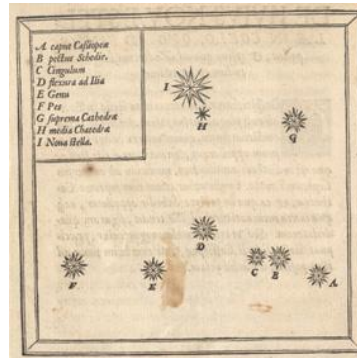 A caput Cassiopeæ
B pectus Schedir.
C Cingulum
D flexura ad Ilia
E Genu
F Pes
G suprema Cathedræ
H media Chatedræ
I Noua stella.
I
H
G
D
C
E
A
F
E